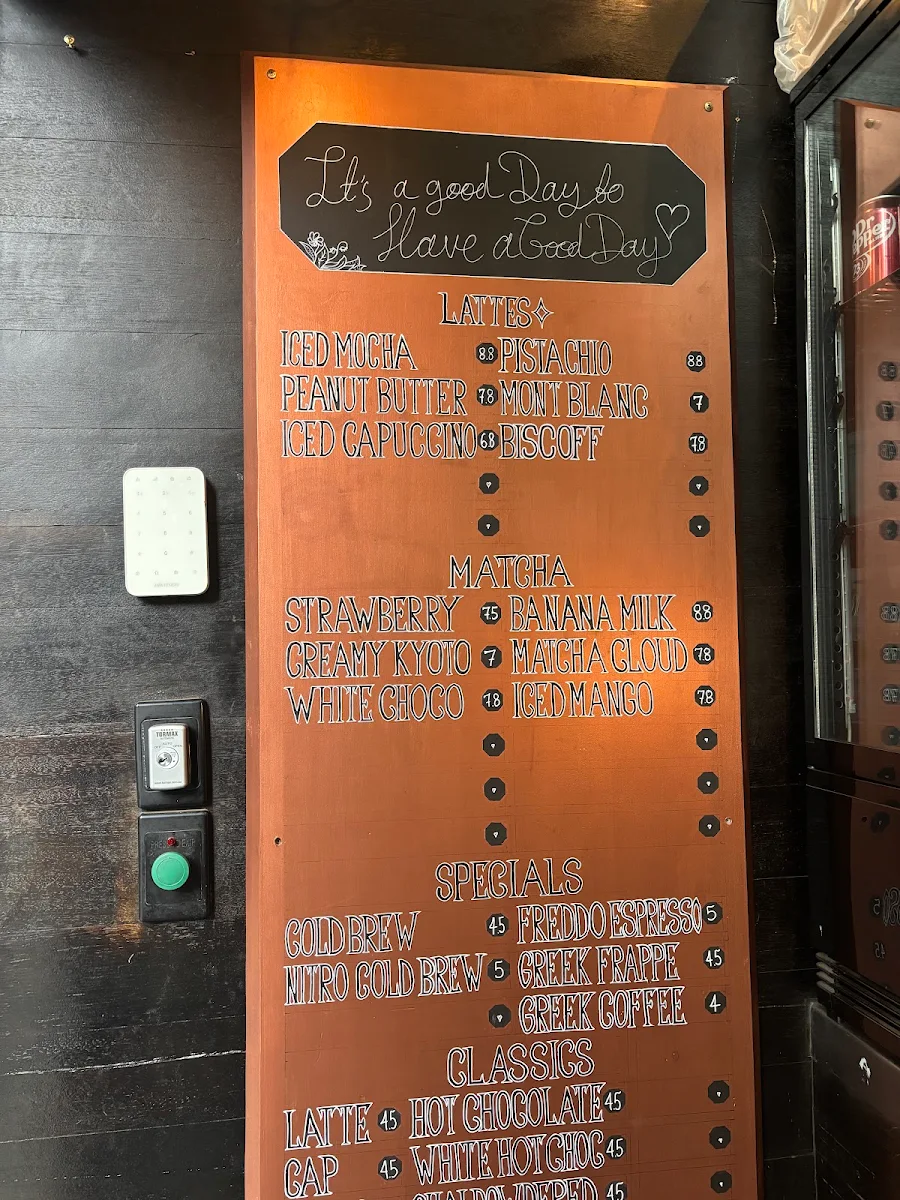 It's a good Day to
Have a Good Day
LATTES
ICED MOCHA 8.8 PISTACHIO 8.8
PEANUT BUTTER 7.8 MONT BLANC 7
ICED CAPUCCINO 6.8 BISCOFF 7.8
MATCHA
STRAWBERRY 7.5 BANANA MILK 8.8
CREAMY KYOTO 7 MATCHA CLOUD 7.8
WHITE CHOCO 7.8 ICED MANGO 7.8
SPECIALS
COLD BREW 4.5 FREDDO ESPRESSO 5
NITRO COLD BREW 5 GREEK FRAPPE 4.5
GREEK COFFEE 4
CLASSICS
LATTE 4.5 HOT CHOCOLATE 4.5
CAP 4.5 WHITE HOT CHOC 4.5
CHAI POWDERED 4.5
TORMAX
Dr Pepper